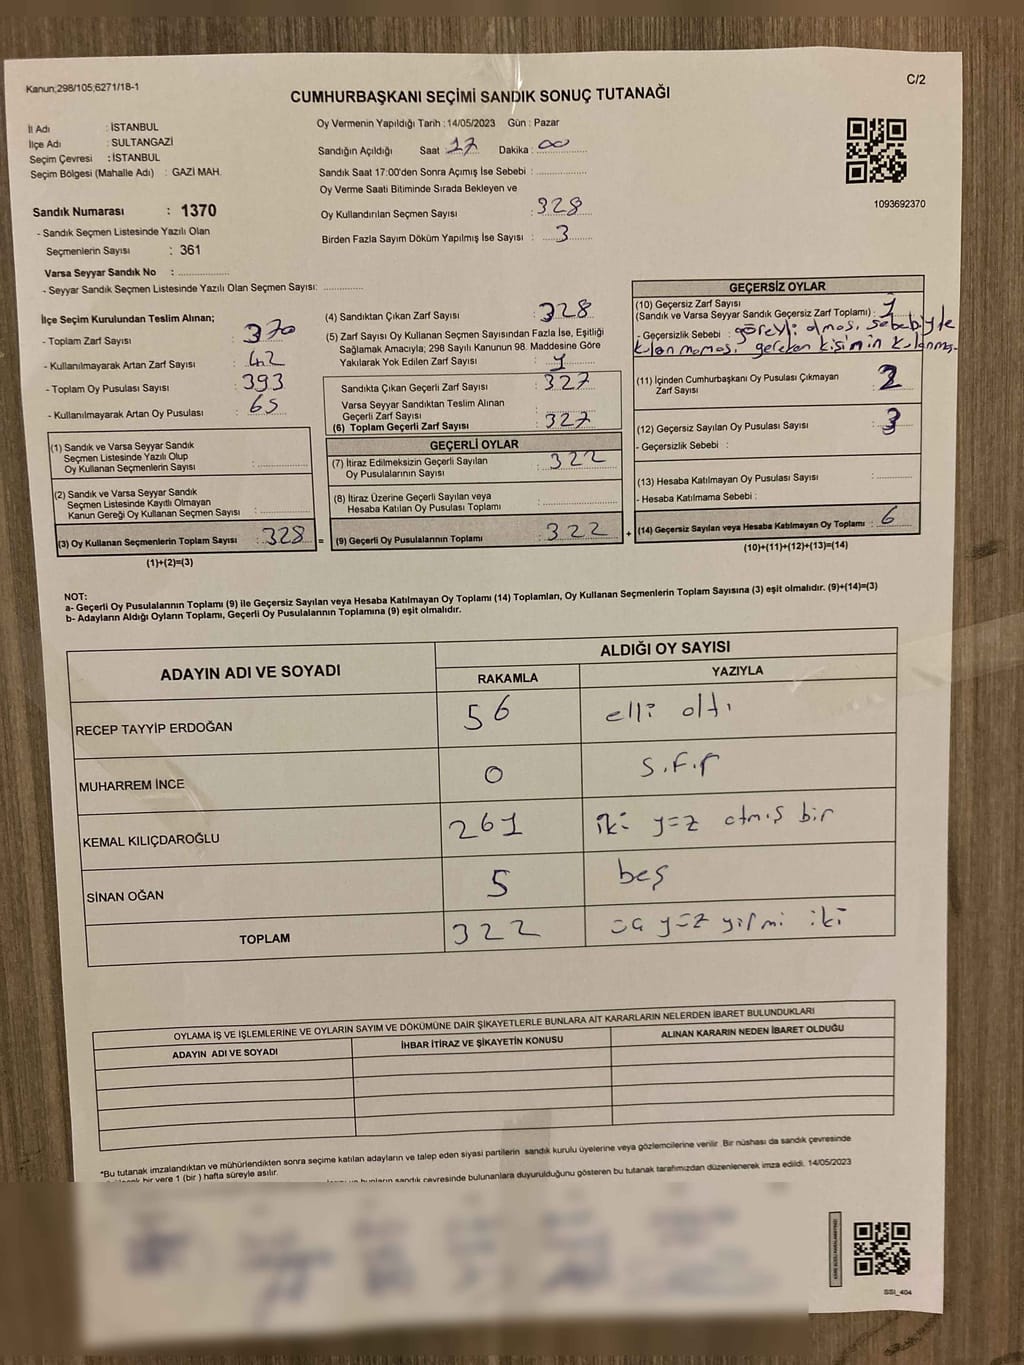 Kanun;298/105;6271/18-1
C/2
CUMHURBAŞKANI SEÇİMİ SANDIK SONUÇ TUTANAĞI
İl Adı : İSTANBUL
İlçe Adı : SULTANGAZİ
Seçim Çevresi : İSTANBUL
Seçim Bölgesi (Mahalle Adı) : GAZİ MAH.
Oy Vermenin Yapıldığı Tarih : 14/05/2023 Gün : Pazar
Sandığın Açıldığı Saat 17 Dakika : 00
Sandık Saat 17:00'den Sonra Açımış İse Sebebi :
Oy Verme Saati Bitiminde Sırada Bekleyen ve
Oy Kullandırılan Seçmen Sayısı : 328
Birden Fazla Sayım Döküm Yapılmış İse Sayısı : 3
1093692370
Sandık Numarası : 1370
- Sandık Seçmen Listesinde Yazılı Olan
Seçmenlerin Sayısı : 361
Varsa Seyyar Sandık No :
- Seyyar Sandık Seçmen Listesinde Yazılı Olan Seçmen Sayısı:
İlçe Seçim Kurulundan Teslim Alınan;
- Toplam Zarf Sayısı : 370
- Kullanılmayarak Artan Zarf Sayısı : 42
- Toplam Oy Pusulası Sayısı : 393
- Kullanılmayarak Artan Oy Pusulası : 65
(1) Sandık ve Varsa Seyyar Sandık
Seçmen Listesinde Yazılı Olup
Oy Kullanan Seçmenlerin Sayısı :
(2) Sandık ve Varsa Seyyar Sandık
Seçmen Listesinde Kayıtlı Olmayan
Kanun Gereği Oy Kullanan Seçmen Sayısı :
(3) Oy Kullanan Seçmenlerin Toplam Sayısı : 328 =
(1)+(2)=(3)
(4) Sandıktan Çıkan Zarf Sayısı : 328
(5) Zarf Sayısı Oy Kullanan Seçmen Sayısından Fazla İse, Eşitliği
Sağlamak Amacıyla; 298 Sayılı Kanunun 98. Maddesine Göre
Yakılarak Yok Edilen Zarf Sayısı : 1
Sandıkta Çıkan Geçerli Zarf Sayısı : 327
Varsa Seyyar Sandıktan Teslim Alınan
Geçerli Zarf Sayısı :
(6) Toplam Geçerli Zarf Sayısı : 327
GEÇERLİ OYLAR
(7) İtiraz Edilmeksizin Geçerli Sayılan
Oy Pusulalarının Sayısı : 322
(8) İtiraz Üzerine Geçerli Sayılan veya
Hesaba Katılan Oy Pusulası Toplamı :
(9) Geçerli Oy Pusulalarının Toplamı : 322 +
GEÇERSİZ OYLAR
(10) Geçersiz Zarf Sayısı
(Sandık ve Varsa Seyyar Sandık Geçersiz Zarf Toplamı) : 1
- Geçersizlik Sebebi : görevli olması sebebiyle
gereken kişinin
(11) İçinden Cumhurbaşkanı Oy Pusulası Çıkmayan
Zarf Sayısı : 2
(12) Geçersiz Sayılan Oy Pusulası Sayısı : 3
- Geçersizlik Sebebi :
(13) Hesaba Katılmayan Oy Pusulası Sayısı :
- Hesaba Katılmama Sebebi :
(14) Geçersiz Sayılan veya Hesaba Katılmayan Oy Toplamı : 6
(10)+(11)+(12)+(13)=(14)
NOT:
a- Geçerli Oy Pusulalarının Toplamı (9) ile Geçersiz Sayılan veya Hesaba Katılmayan Oy Toplamı (14) Toplamları, Oy Kullanan Seçmenlerin Toplam Sayısına (3) eşit olmalıdır. (9)+(14)=(3)
b- Adayların Aldığı Oyların Toplamı, Geçerli Oy Pusulalarının Toplamına (9) eşit olmalıdır.
ADAYIN ADI VE SOYADI
ALDIĞI OY SAYISI
RAKAMLA YAZIYLA
RECEP TAYYİP ERDOĞAN 56 elli altı
MUHARREM İNCE 0 sıfır
KEMAL KILIÇDAROĞLU 261 iki yüz atmış bir
SİNAN OĞAN 5 beş
TOPLAM 322 üç yüz yirmi iki
OYLAMA İŞ VE İŞLEMLERİNE VE OYLARIN SAYIM VE DÖKÜMÜNE DAİR ŞİKAYETLERLE BUNLARA AİT KARARLARIN NELERDEN İBARET BULUNDUKLARI
ADAYIN ADI VE SOYADI İHBAR İTİRAZ VE ŞİKAYETİN KONUSU ALINAN KARARIN NEDEN İBARET OLDUĞU
*Bu tutanak imzalandıktan ve mühürlendikten sonra seçime katılan adayların ve talep eden siyasi partilerin sandık kurulu üyelerine veya gözlemcilerine verilir. Bir nüshası da sandık çevresinde
bir yere 1 (bir) hafta süreyle asılır.
bunların sandık çevresinde bulunanlara duyurulduğunu gösteren bu tutanak tarafımızdan düzenlenerek imza edildi. 14/05/2023
SSI_404